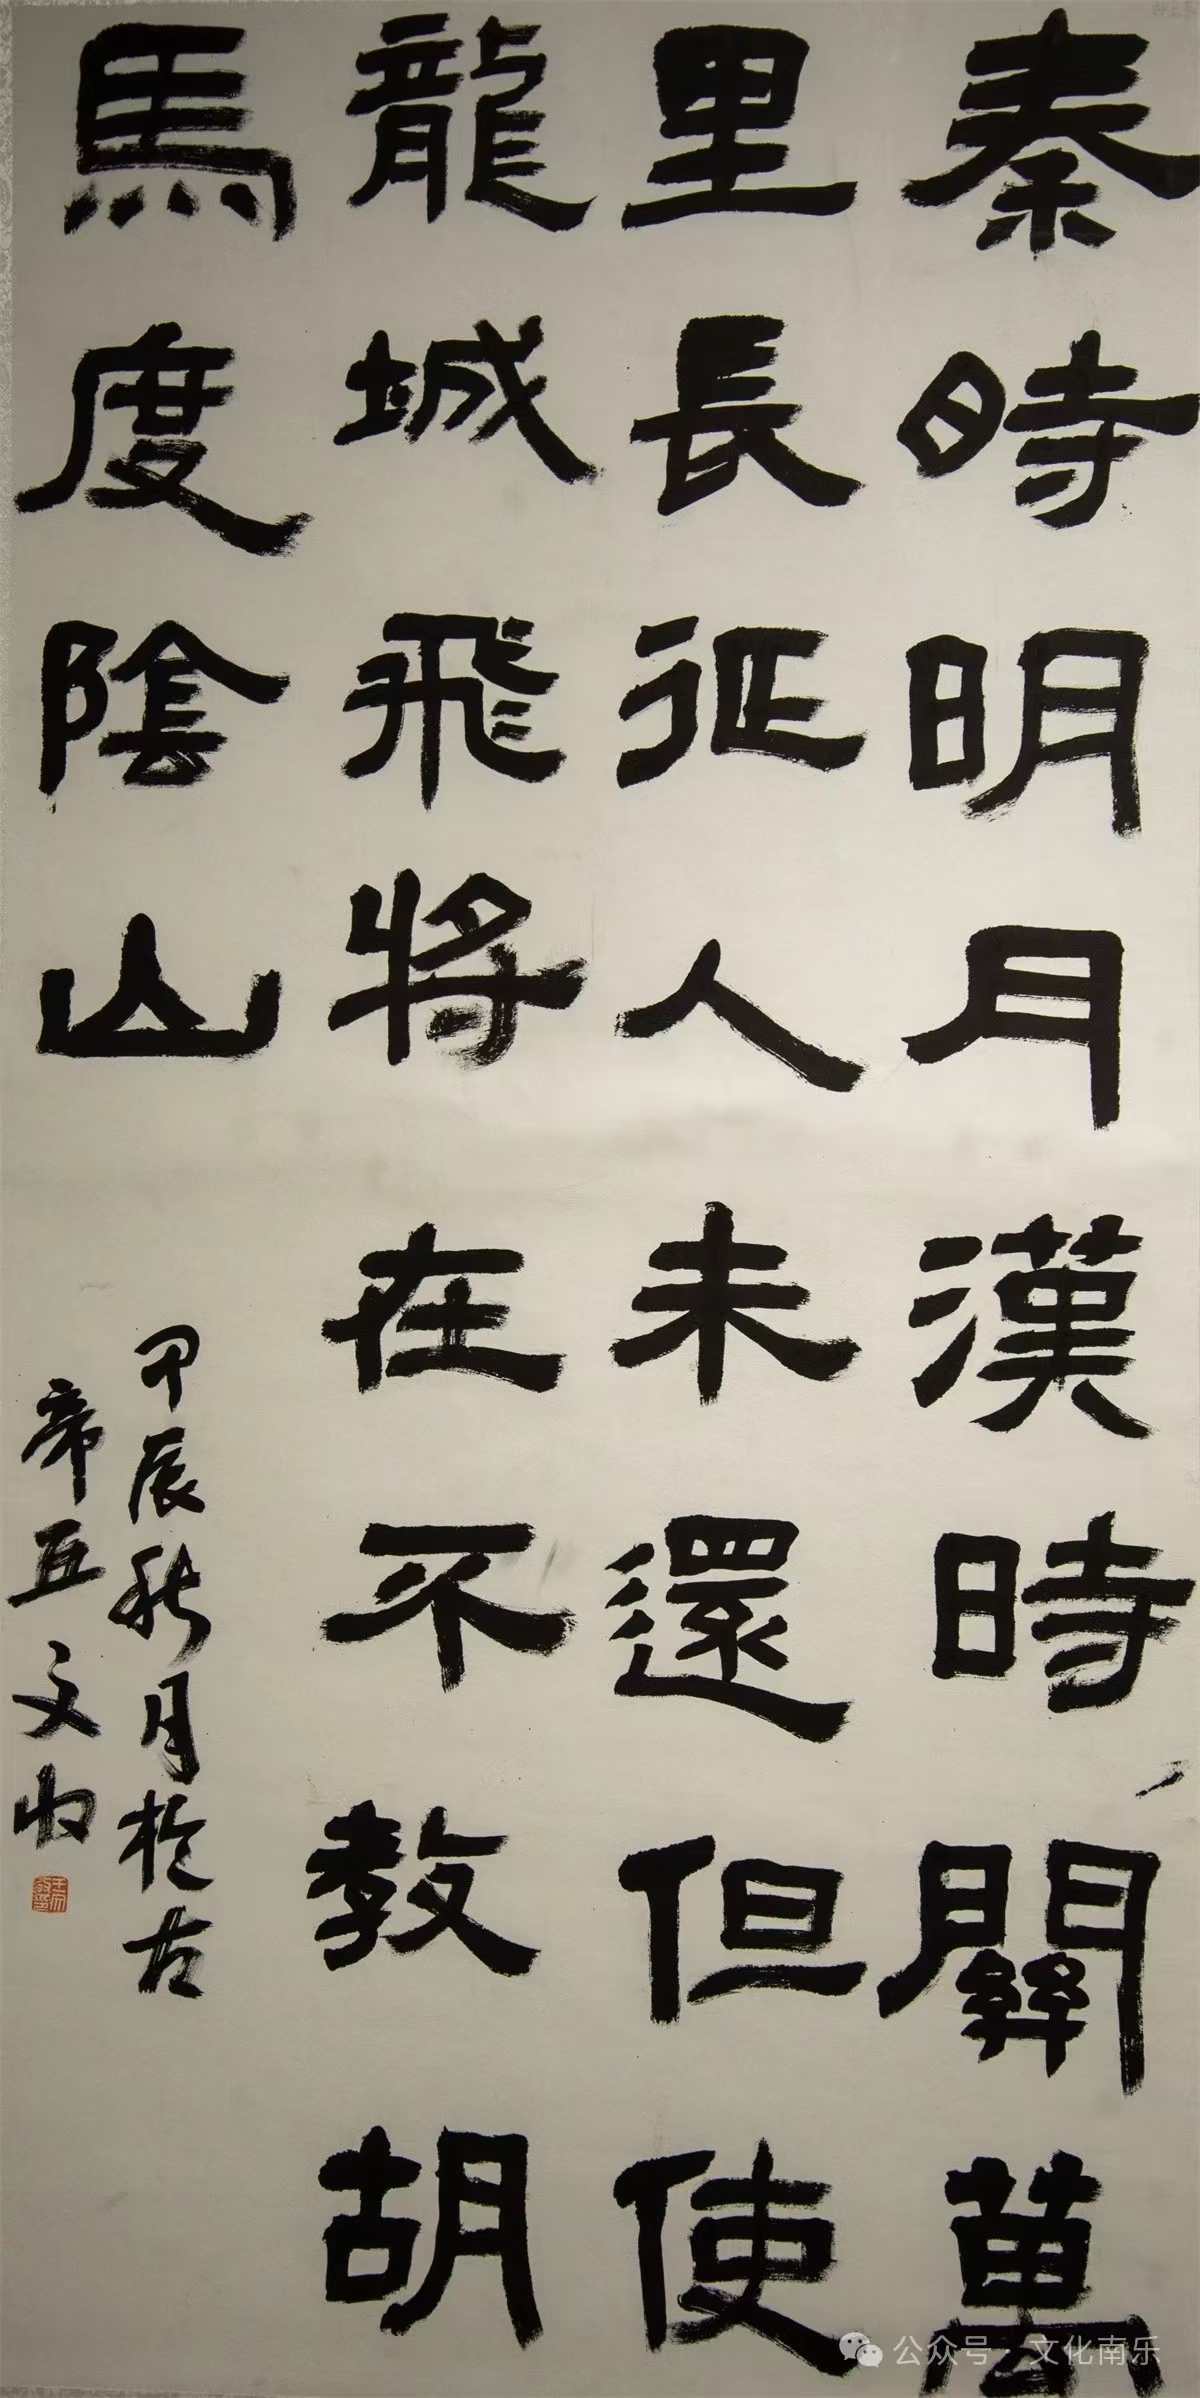 秦時明月漢時關萬
里長征人未還但使
龍城飛將在不教胡
馬度陰山
甲辰秋月於古
帝丘文收
公众号·文化南乐